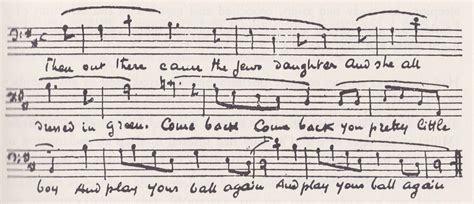 Then out there came the Jews daughter And she all
dressed in Green. Come back Come back you pretty little
boy And play your ball again And play your ball again